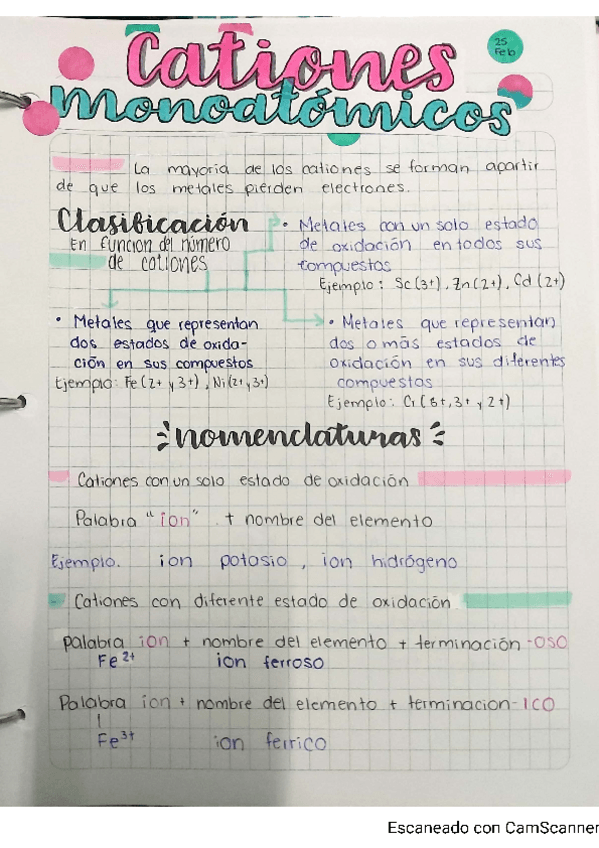 Cationes
25
Feb
monoatómicos
La mayoria de los cationes se forman apartir
de que los metales pierden electrones.
Clasificación
En funcion del número
de cationes
• Metales con un solo estado
de oxidación en todos sus
compuestos
Ejemplo: Sc (3+), Zn (2+), Cd (2+)
• Metales que representan
dos estados de oxida-
ción en sus compuestos
Ejemplo: Fe (2+ y 3+), Ni (2+ y 3+)
• Metales que representan
dos o más estados de
oxidación en sus diferentes
compuestos
Ejemplo: Cr (6+, 3+ y 2+)
nomenclaturas
Cationes con un solo estado de oxidación
Palabra "ion" + nombre del elemento
Ejemplo. ion potasio, ion hidrógeno
Cationes con diferente estado de oxidación
palabra ion + nombre del elemento + terminación -OSO
Fe2+ ion ferroso
Palabra ion + nombre del elemento + terminacion -ICO
Fe3+ ion ferrico
Escaneado con CamScanner